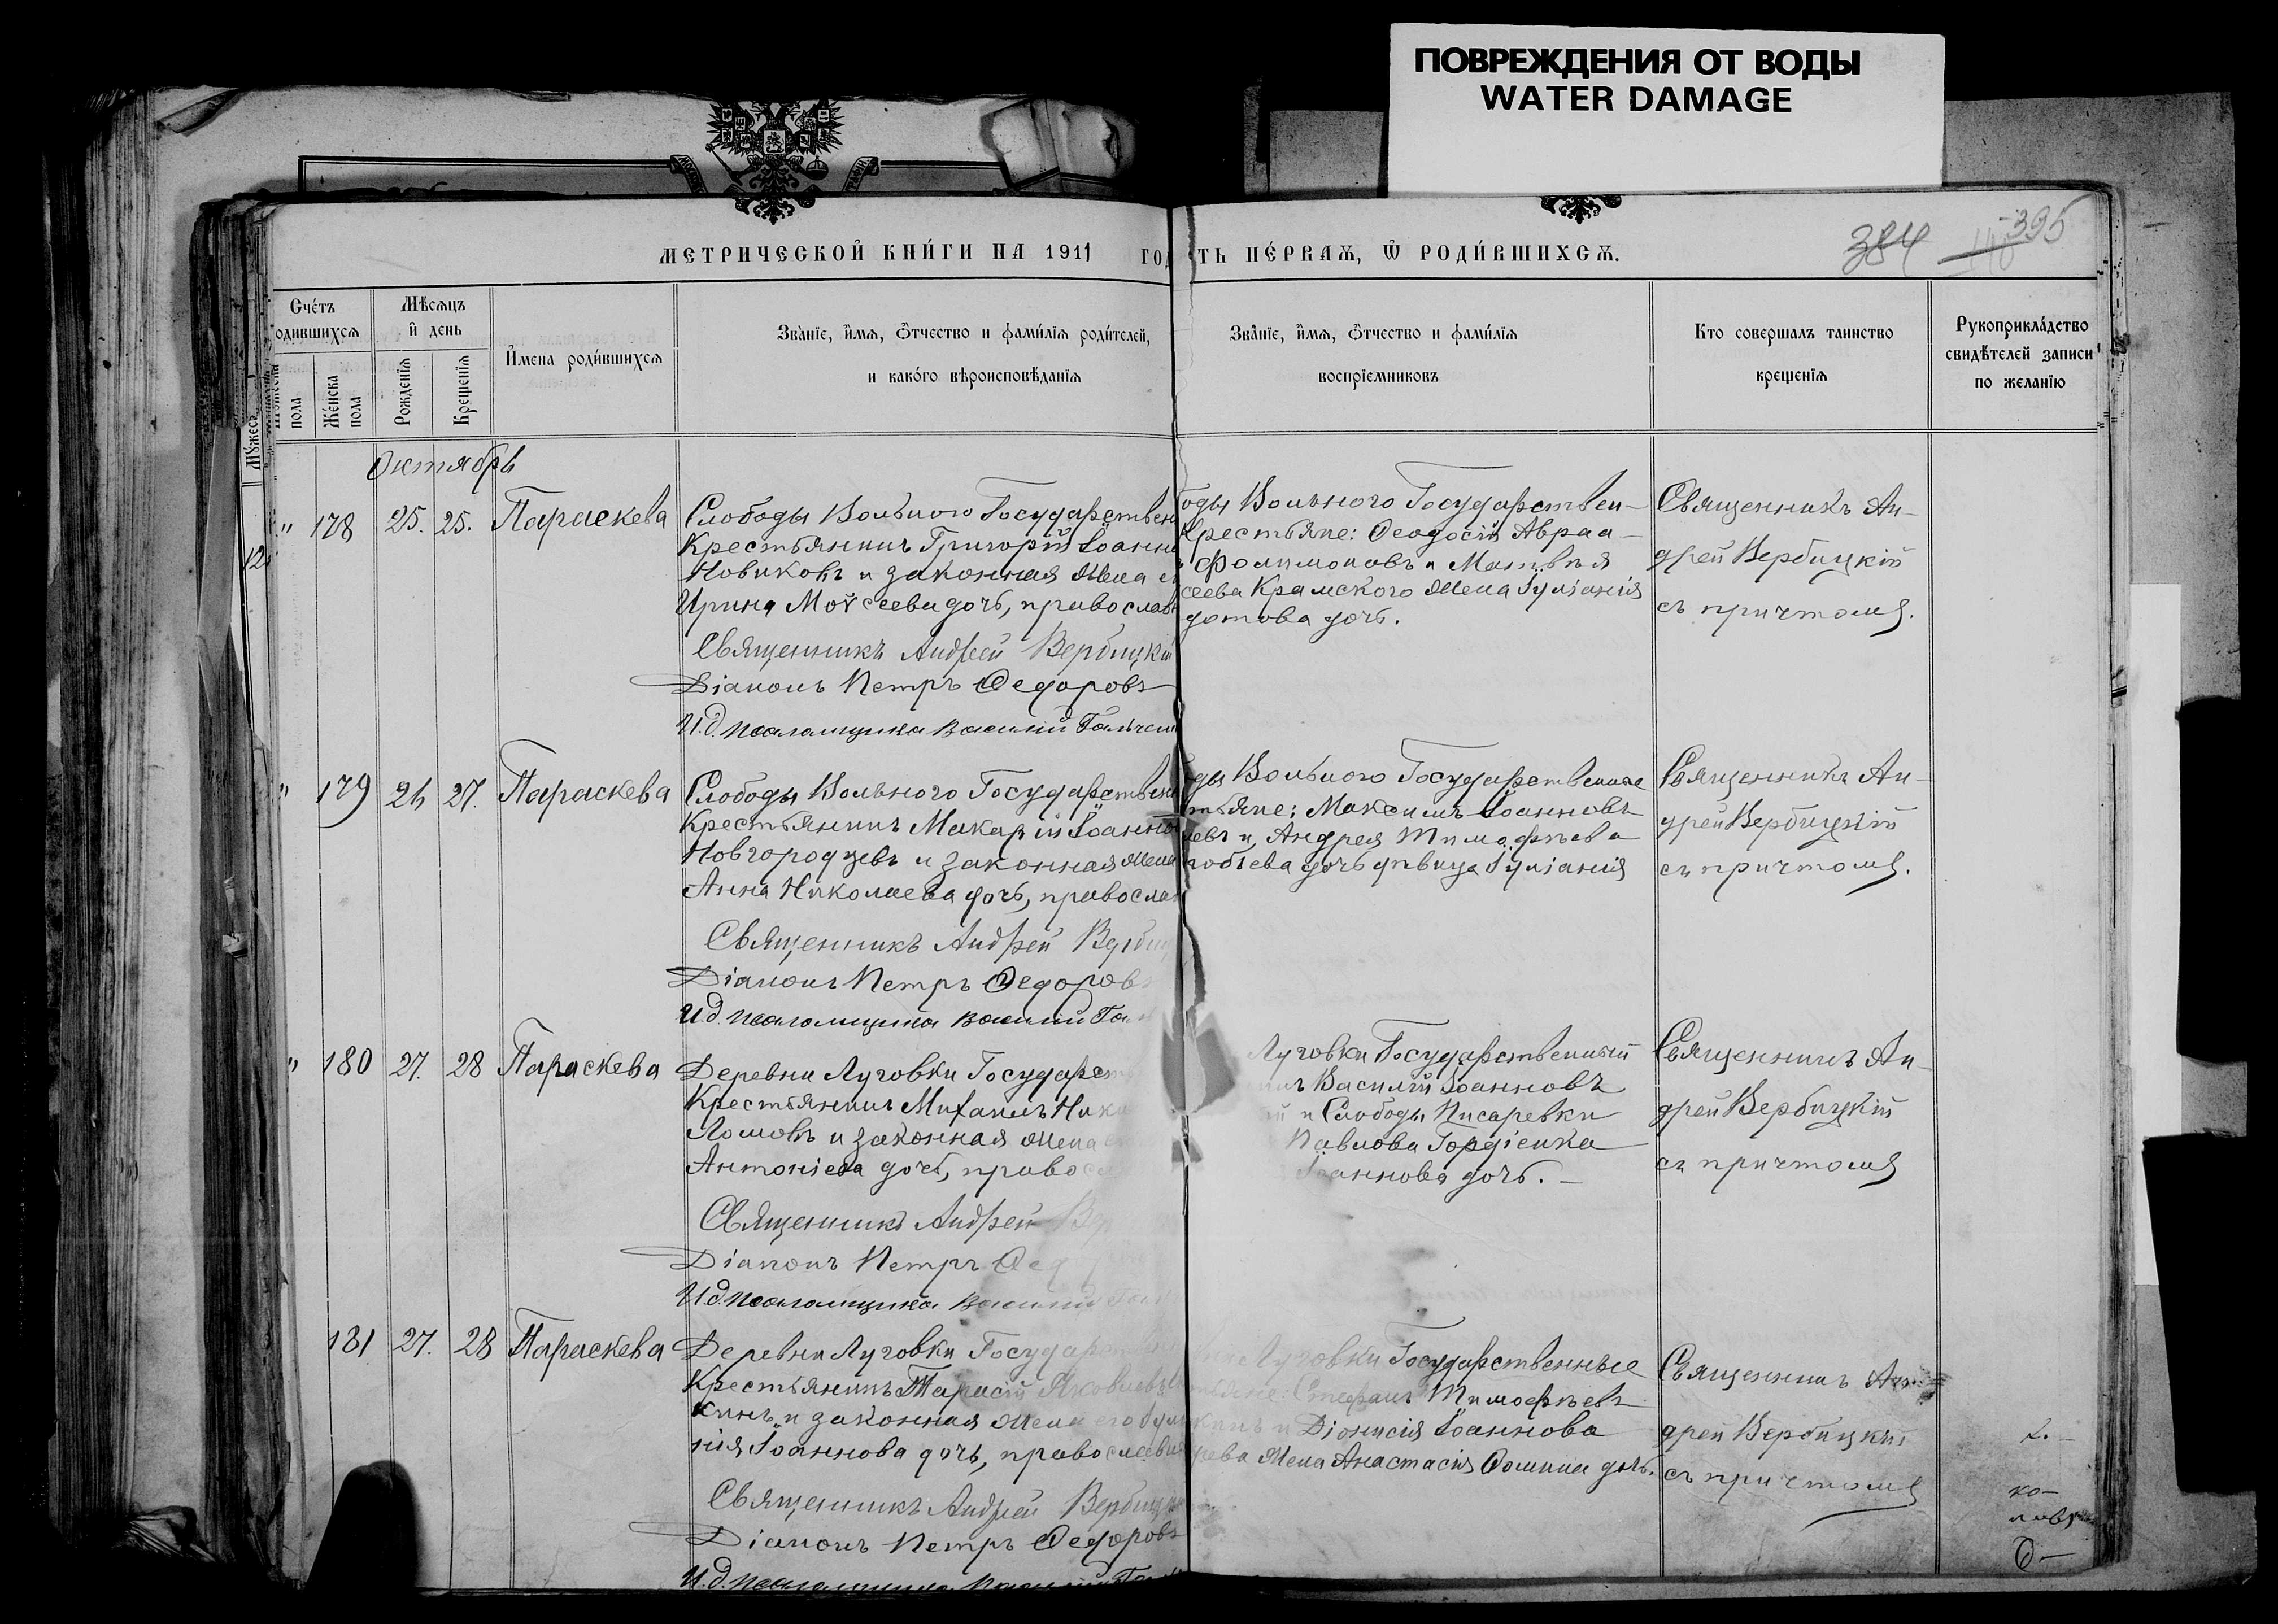 ПОВРЕЖДЕНИЯ ОТ ВОДЫ
WATER DAMAGE
МЕТРИЧЕСКОЙ КНИ́ГИ НА 1911 ГОД
ТЬ ПЕ́РВАѦ, Ѿ РОДИ́ВШИХСѦ.
384
395
Счётъ
одившихсѧ
Мѣсѧцъ
и день
И́мена роди́вшихсѧ
Зва́нїе, и́мѧ, ѻ́тчество и фами́лїѧ роди́телей,
и како́го вѣроисповѣ́данїѧ
Зва́нїе, и́мѧ, ѻ́тчество и фами́лїѧ
воспрїемниковъ
Кто совершалъ таинство
крещенїѧ
Рукоприкла́дство
свидѣтелей записи
по желанїю
пола
Же́нска
пола
Рожденїѧ
Крещенїѧ
Мꙋжес
Октябрь
" 178 25. 25. Параскева
Слободы Вольного Государствен
Крестьянинъ Григорій Іоанн
Новиковъ и законная жена е
Ирина Мойсеева дочь, православ
Священникъ Андрей Вербицкій
Діаконъ Петръ Ѳедоровъ
И.д. псаломщика Василій Гальчен
оды Вольного Государствен-
Крестьяне: Ѳеодосій Авраа-
Филимоновъ и Матвѣя
сеева Крамского жена Іуліанія
дотова дочь.
Священникъ Ан-
дрей Вербицкій
съ причтомъ.
" 179 26 27. Параскева
Слободы Вольного Государствен
Крестьянинъ Макарій Іоанно
Новгородцевъ и законная жена
Анна Николаева дочь, правосла
Священникъ Андрей Верби
Діаконъ Петръ Ѳедоров
И.д. псаломщика Василій Га
ды Вольного Государственные
тьяне: Максимъ Іоанновъ
евъ и Андрея Тимофѣева
обьева дочь дѣвица Іуліанія
Священникъ Ан-
дрей Вербицкій
съ причтомъ.
" 180 27. 28 Параскева
Деревни Луговки Государст
Крестьянинъ Михаилъ Нико
Ломовъ и законная жена
Антоніева дочь, право
Священникъ Андрей Вер
Діаконъ Петръ Ѳед
И.д. псаломщика Василій
Луговки Государственный
нъ Василій Іоанновъ
й и Слободы Писаревки
Павлова Гордіенка
Іоаннова дочь. -
Священникъ Ан-
дрей Вербицкій
съ причтомъ
181 27. 28 Параскева
Деревни Луговки Государствен
Крестьянинъ Тарасій Яковлевъ
кинъ и законная жена его Іулі
нія Іоаннова дочь, православн
Священникъ Андрей Вербицк
Діаконъ Петръ Ѳедоровъ
И.д. псаломщика Василій Гал
Луговки Государственные
тьяне: Стефанъ Тимофѣевъ
кинъ и Діонисія Іоаннова
рева жена Анастасія Ѳомина дочь.
Священникъ Ан
дрей Вербицкій
съ причтомъ
ко-